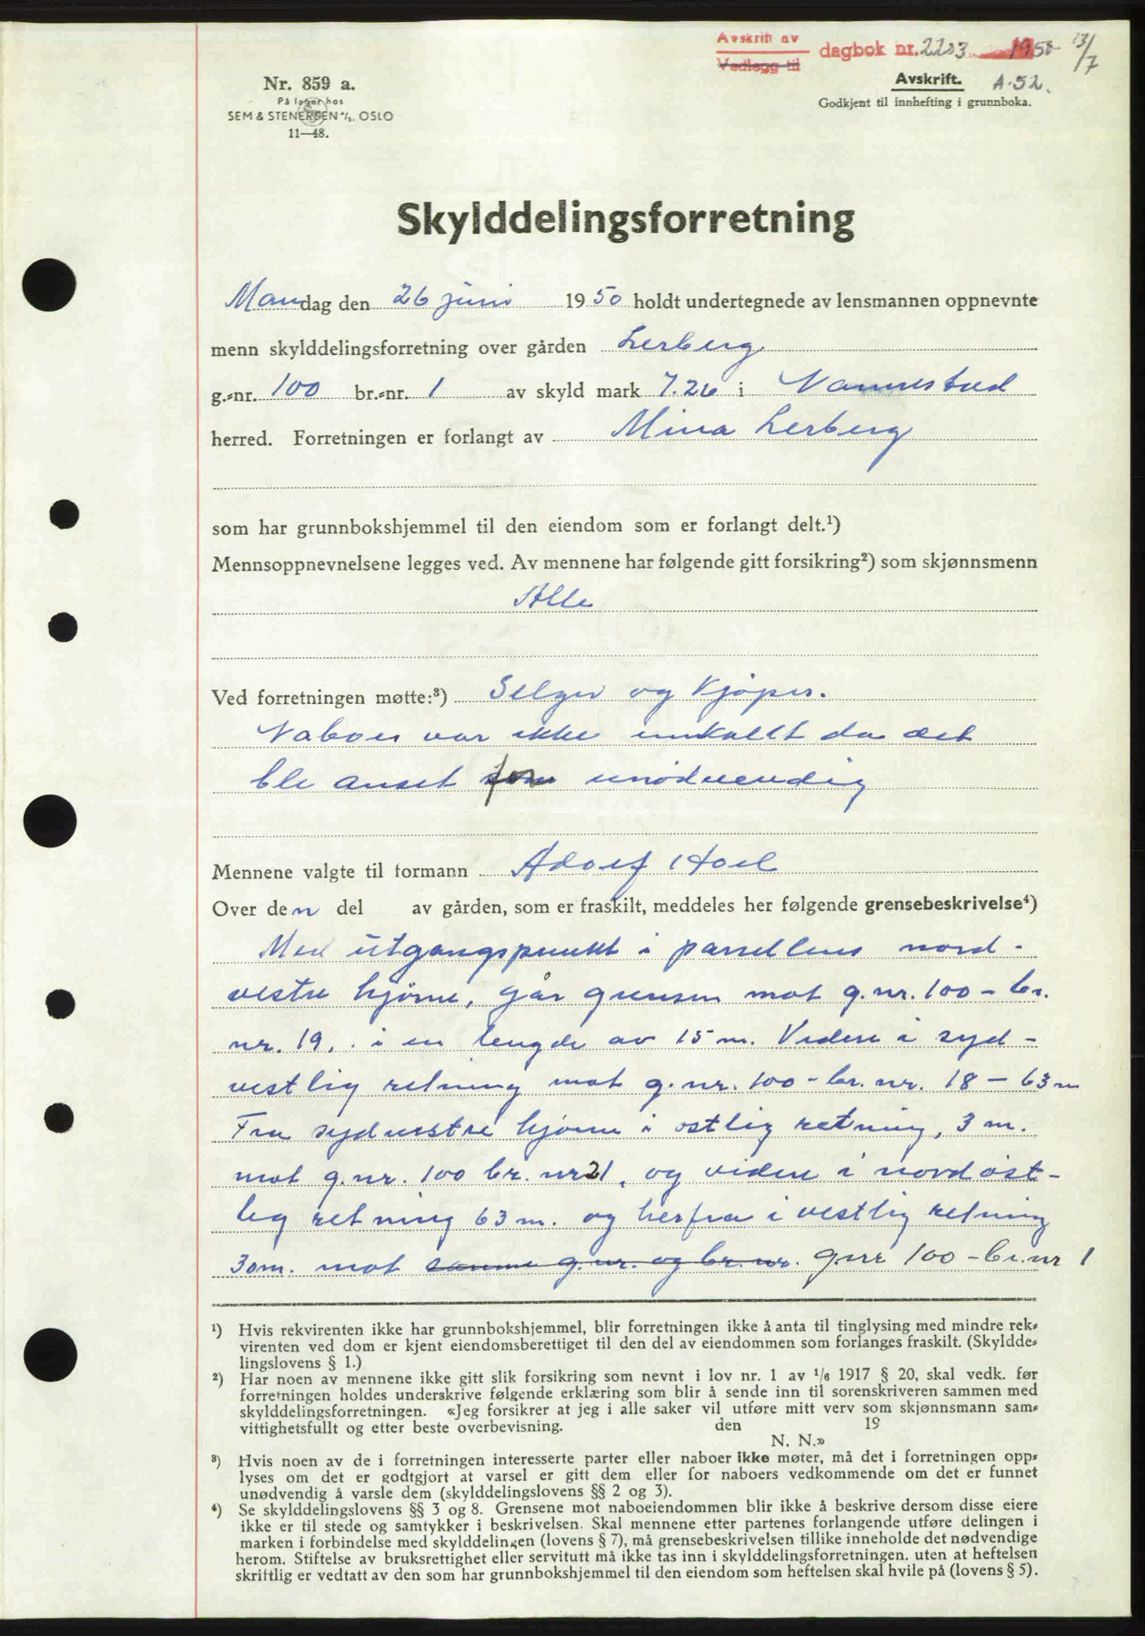 Avskrift av
Vedlegg til
dagbok nr. 2203 1950 13/7
Avskrift. A-52.
Godkjent til innhefting i grunnboka.
Nr. 859 a.
På lager hos
SEM & STENERSEN A/S. OSLO
11—48.
Skylddelingsforretning
Mandag den 26 juni 1950 holdt undertegnede av lensmannen oppnevnte
menn skylddelingsforretning over gården Lerberg
g.-nr. 100 br.-nr. 1 av skyld mark 7.26 i Nannestad
herred. Forretningen er forlangt av Mina Lerberg
som har grunnbokshjemmel til den eiendom som er forlangt delt.¹)
Mennsoppnevnelsene legges ved. Av mennene har følgende gitt forsikring²) som skjønnsmenn
Alle
Ved forretningen møtte:³) Selger og Kjøper.
Naboer var ikke innkallt da det
ble anset for unødvendig
Mennene valgte til formann Adolf Hoel
Over den del av gården, som er fraskilt, meddeles her følgende grensebeskrivelse⁴)
Med utgangspunkt i parsellens nord-
vestre hjørne, går grensen mot g.nr. 100 - br.
nr. 19, i en lengde av 15 m. Videre i syd-
vestlig retning mot g.nr. 100 - br. nr. 18 - 63 m
Fra sydvestre hjørne i østlig retning, 3 m.
mot g.nr. 100 br. nr 21, og videre i nordøst-
lig retning 63 m. og herfra i vestlig retning
30m. mot samme g.nr. og br.nr. g.nr 100 - br.nr 1
¹) Hvis rekvirenten ikke har grunnbokshjemmel, blir forretningen ikke å anta til tinglysing med mindre rek-
virenten ved dom er kjent eiendomsberettiget til den del av eiendommen som forlanges fraskilt. (Skyldde-
lingslovens § 1.)
²) Har noen av mennene ikke gitt slik forsikring som nevnt i lov nr. 1 av 1/6 1917 § 20, skal vedk. før
forretningen holdes underskrive følgende erklæring som blir å sende inn til sorenskriveren sammen med
skylddelingsforretningen. «Jeg forsikrer at jeg i alle saker vil utføre mitt verv som skjønnsmann sam-
vittighetsfullt og etter beste overbevisning. den 19
N. N.»
³) Hvis noen av de i forretningen interesserte parter eller naboer ikke møter, må det i forretningen opp-
lyses om det er godtgjort at varsel er gitt dem eller for naboers vedkommende om det er funnet
unødvendig å varsle dem (skylddelingslovens §§ 2 og 3).
⁴) Se skylddelingslovens §§ 3 og 8. Grensene mot naboeiendommen blir ikke å beskrive dersom disse eiere
ikke er til stede og samtykker i beskrivelsen. Skal mennene etter partenes forlangende utføre delingen i
marken i forbindelse med skylddelingen (lovens § 7), må grensebeskrivelsen tillike inneholde det nødvendige
herom. Stiftelse av bruksrettighet eller servitutt må ikke tas inn i skylddelingsforretningen, uten at heftelsen
skriftlig er vedtatt av den som har grunnbokshjemmel til den eiendom som heftelsen skal hvile på (lovens § 5).